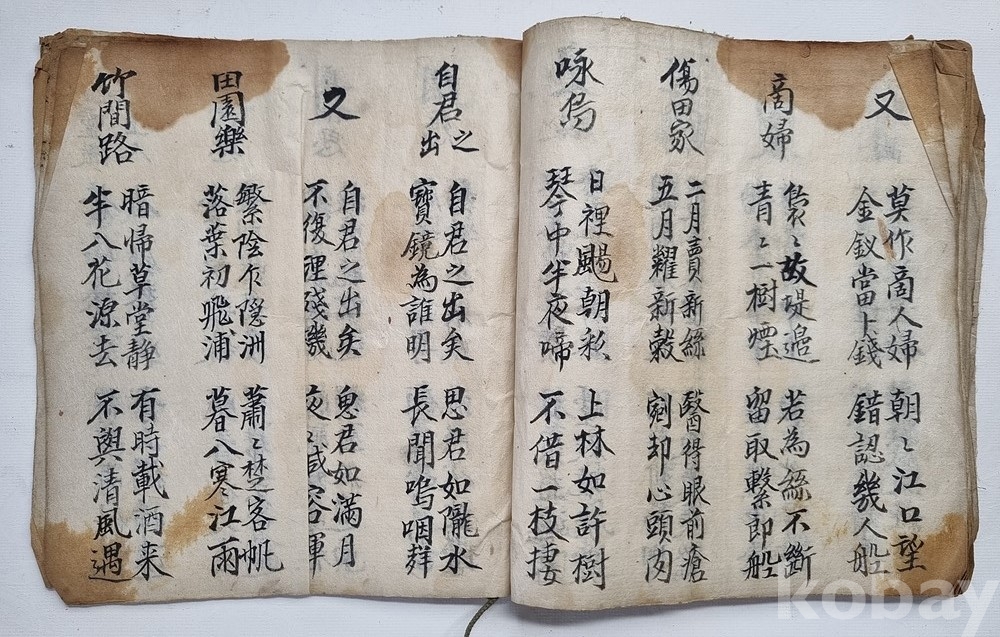 又
莫作商人婦
金釵當卜錢
朝〻江口望
錯認幾人船
商婦
裊〻故堤邉
青〻一樹煙
若為絲不斷
留取繫即船
傷田家
二月賣新絲
五月糶新穀
醫得眼前瘡
剜却心頭肉
咏烏
日裡颺朝彩
琴中半夜啼
上林如許樹
不借一枝棲
自君之出
自君之出矣
寶鏡為誰明
思君如隴水
長聞嗚咽聲
又
自君之出矣
不復理殘機
思君如滿月
夜〻減容暉
田園樂
繁陰乍隐洲
落葉初飛浦
蕭〻楚客帆
暮入寒江雨
竹間路
暗歸草堂靜
半入花源去
有時載酒来
不與清風遇
kobay